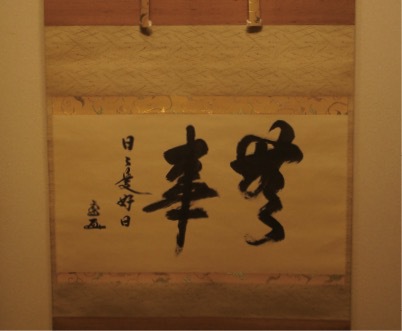 無事
日々是好日